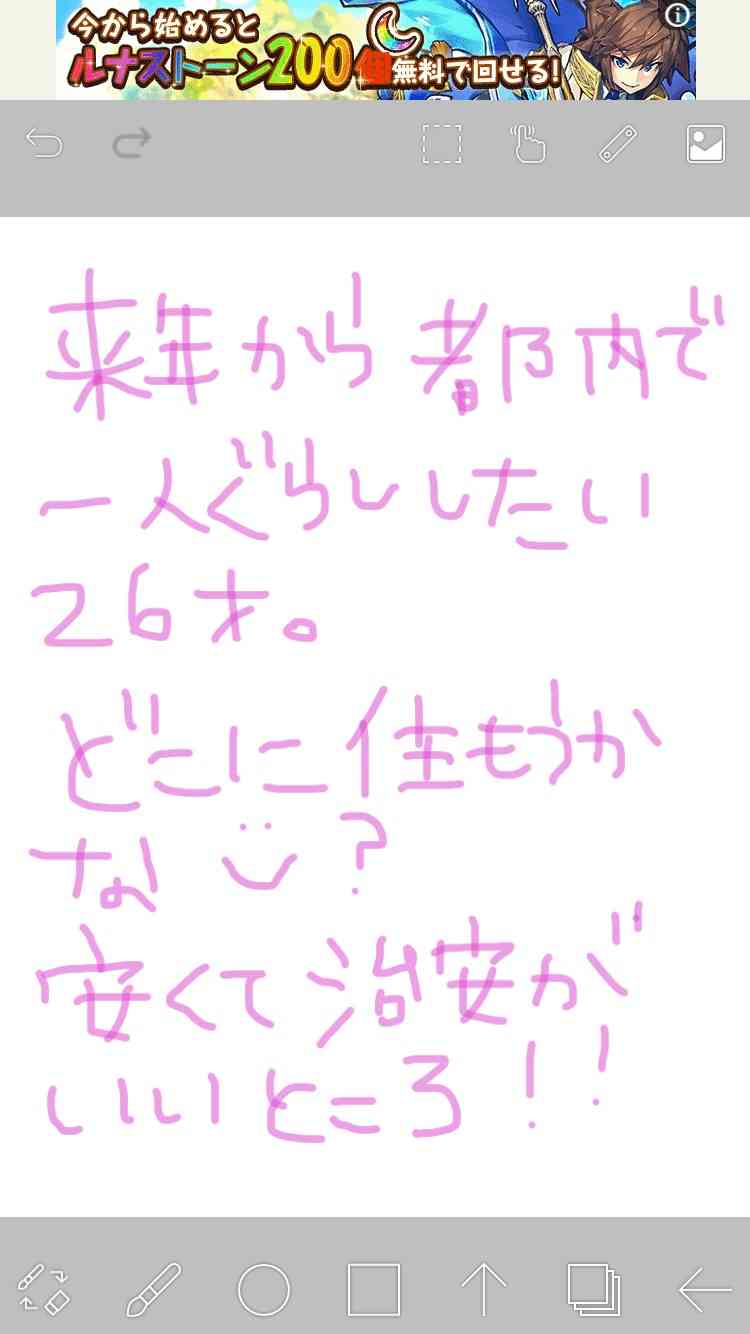 今から始めると
ルナストーン200個無料で回せる!
来年から都内で
一人ぐらししたい
26才。
どこに住もうか
な ?
安くて治安が
いいところ!!